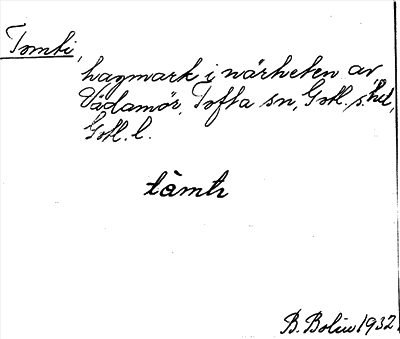 Tomti,
hagmark i närheten av
Vådamör, Tofta sn, Gotl. s. hd,
Gotl. l.
B. Bolin 1932.